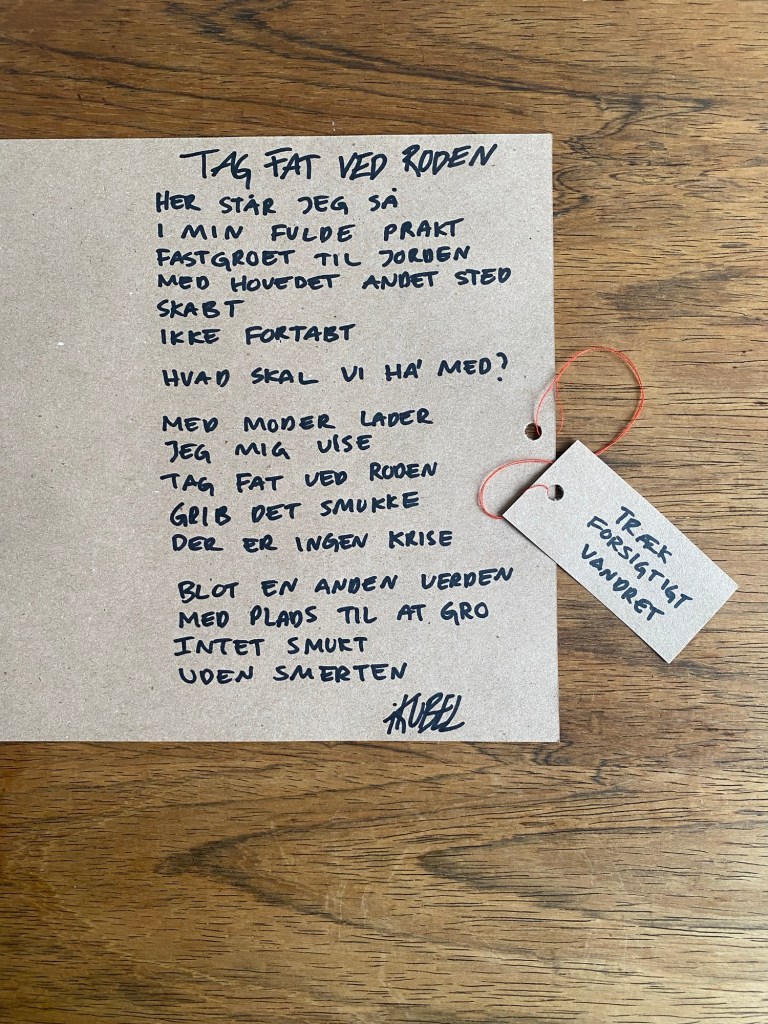 TAG FAT VED RODEN
HER STÅR JEG SÅ
I MIN FULDE PRAKT
FASTGROET TIL JORDEN
MED HOVEDET ANDET STED
SKABT
IKKE FORTABT
HVAD SKAL VI HA' MED?
MED MODER LADER
JEG MIG VISE
TAG FAT VED RODEN
GRIB DET SMUKKE
DER ER INGEN KRISE
BLOT EN ANDEN VERDEN
MED PLADS TIL AT GRO
INTET SMUKT
UDEN SMERTEN
TRÆK
FORSIGTIGT
VANDRET